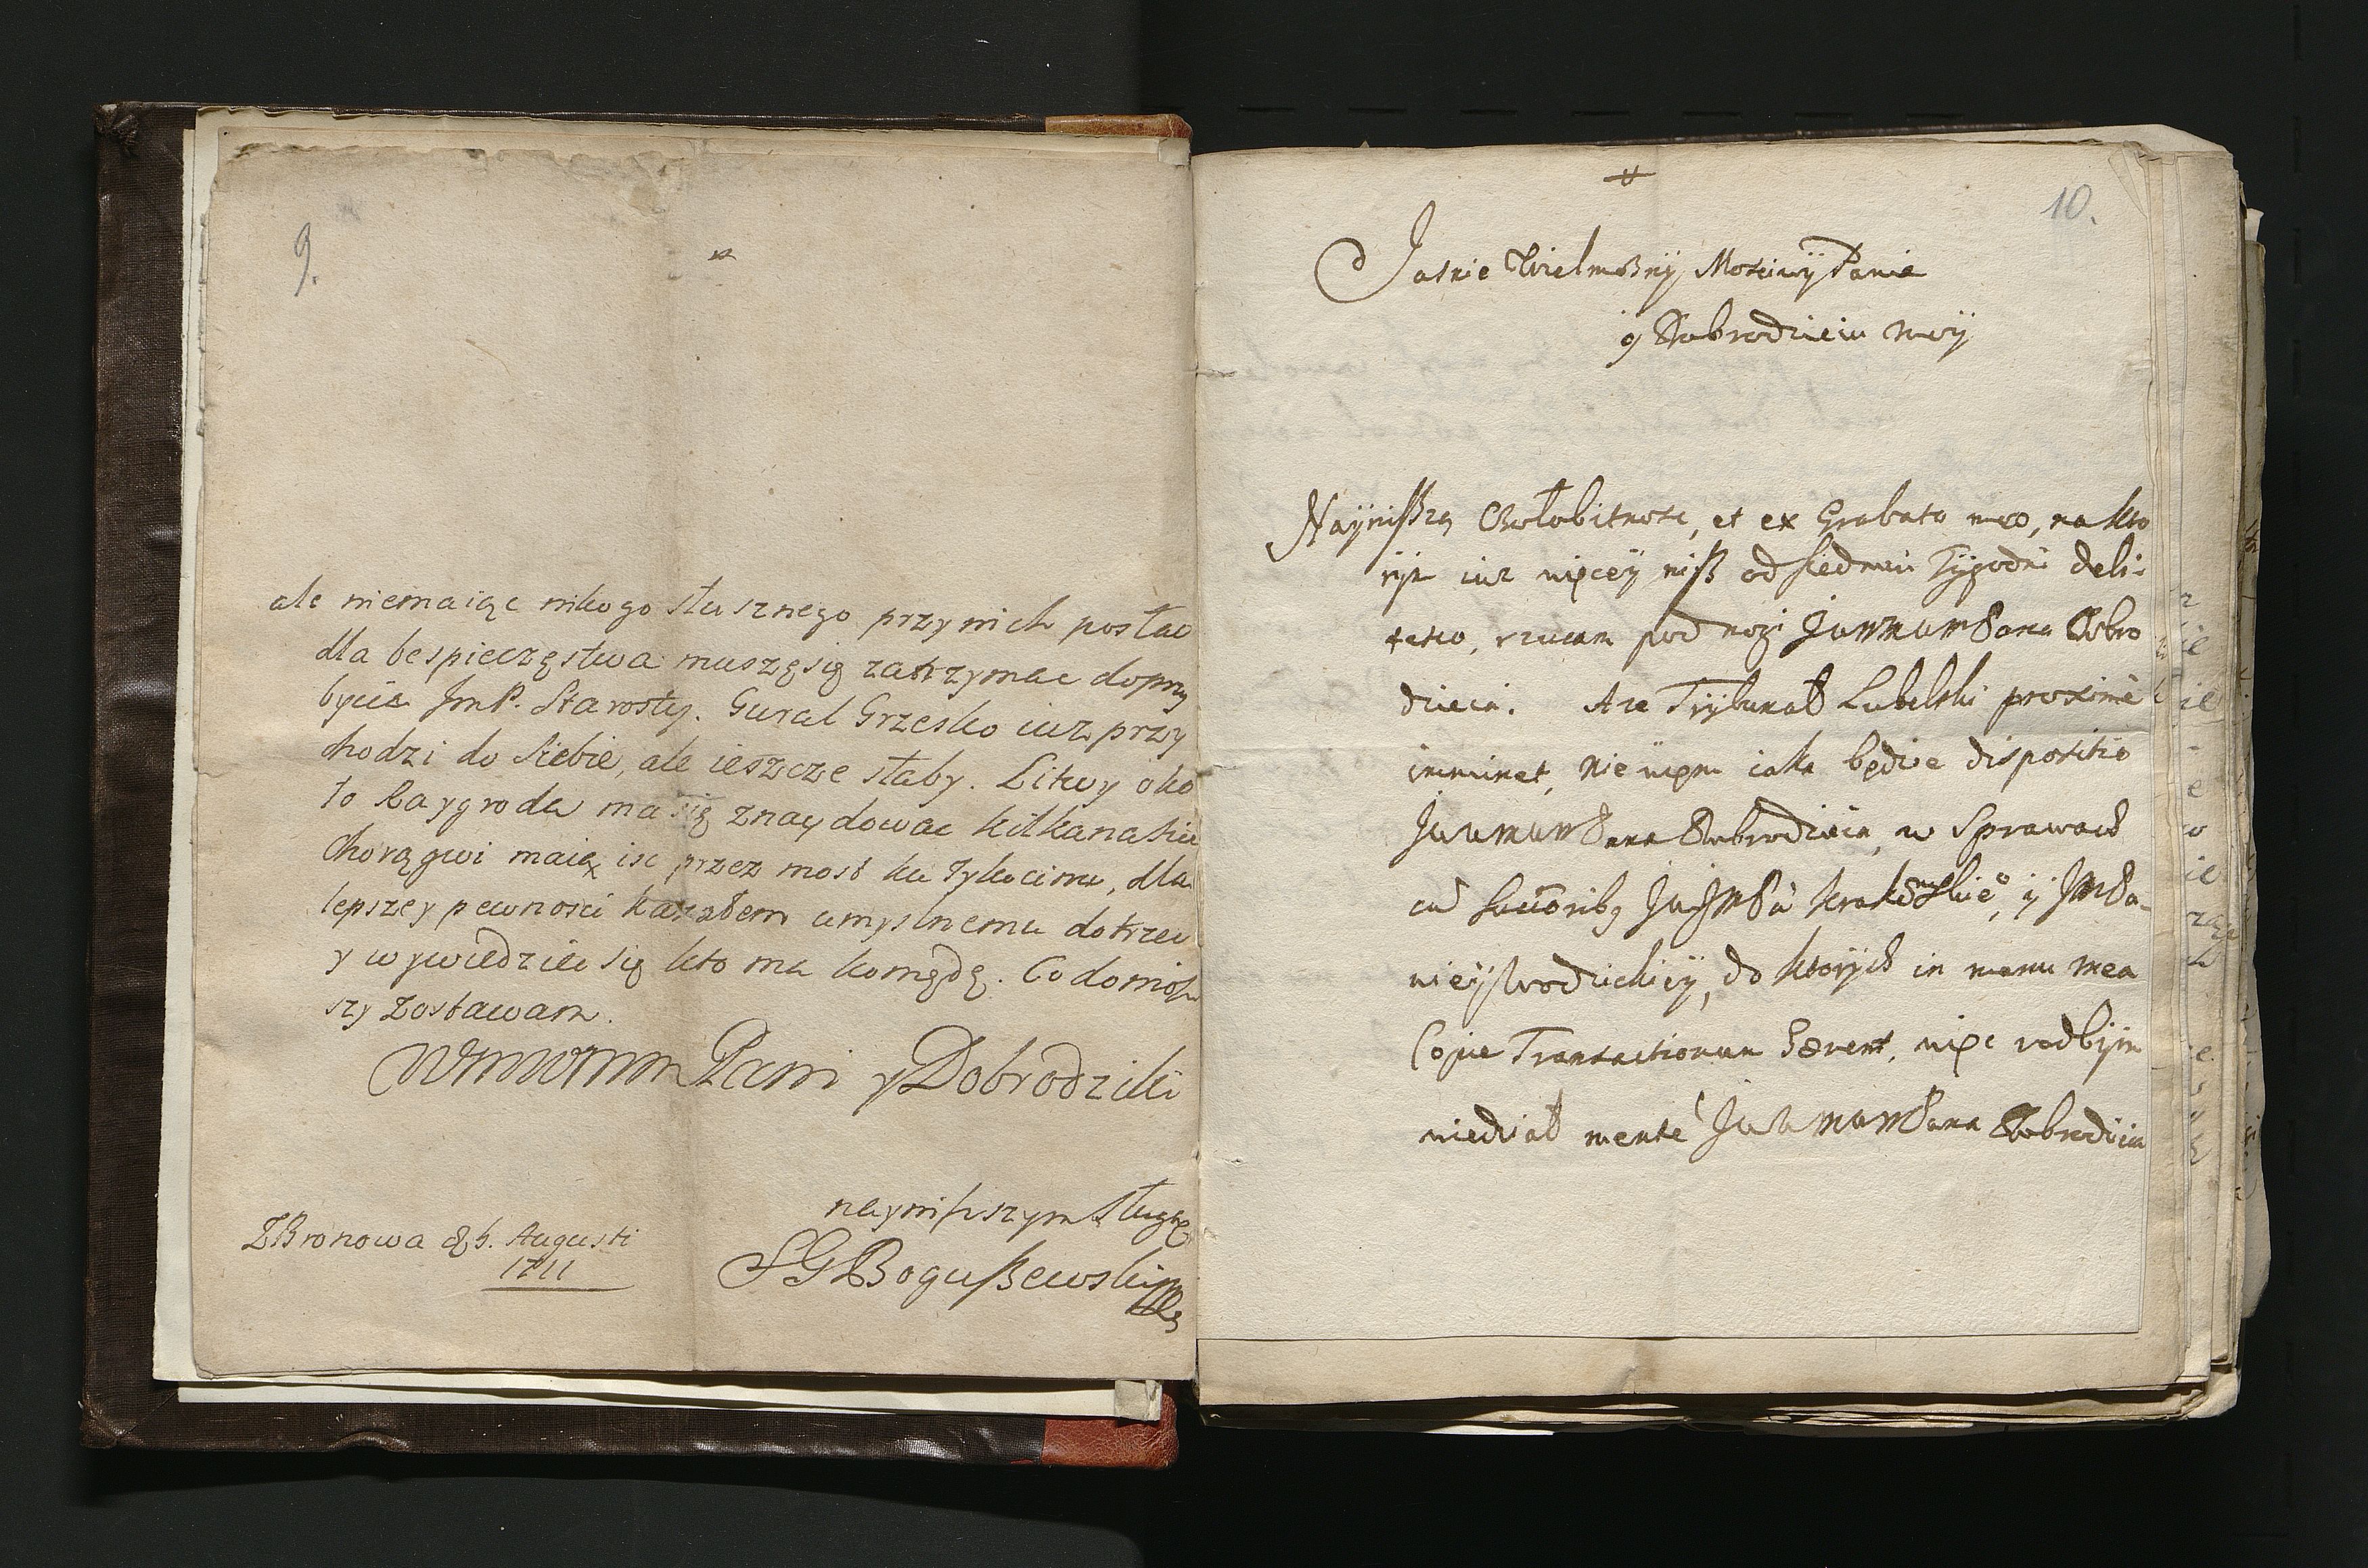 9.
ale niemaiąc nikogo słusznego przy nich posłac
dla bespieczęstwa muszę się zatrzymac do przy
bycia Jm P. Starosty. Gural Grzesko iuz przy
chodzi do siebie, ale ieszcze słaby. Litwy oko
ło Raygroda ma się znaydowac kilkanascie
Chorągwi maią isc przez most ku Tykocinu, dla
lepszey pewnosci kazałem umyslnemu dotrzec
y wywiedziec się kto ma komędę. Co doniosł
szy zostawam.
WMMWMM Pani y Dobrodziki
nayniszszym sługą
SG Bogußewski
Z Bronowa 6. Augusti
1711
10.
Jasnie Wielmożny Mosciwy Panie
y Dobrodzieiu moy
Nayniższą Czołobitnosc, et ex Grabato meo, na kto
rym iuz więcey niß od siedmiu Tygodni deli-
tesco, rzucam pod nogi Pana Dobro
dzieia. Aze Trybunał Lubelski proxime
imminet, nie wiem iaka będzie dispositio
Dobrodzieia, w Sprawach
Krakowskie, y
do ktorych in manu mea
Copie Transactionum więc radbym
wiedział mente Dobrodzieia